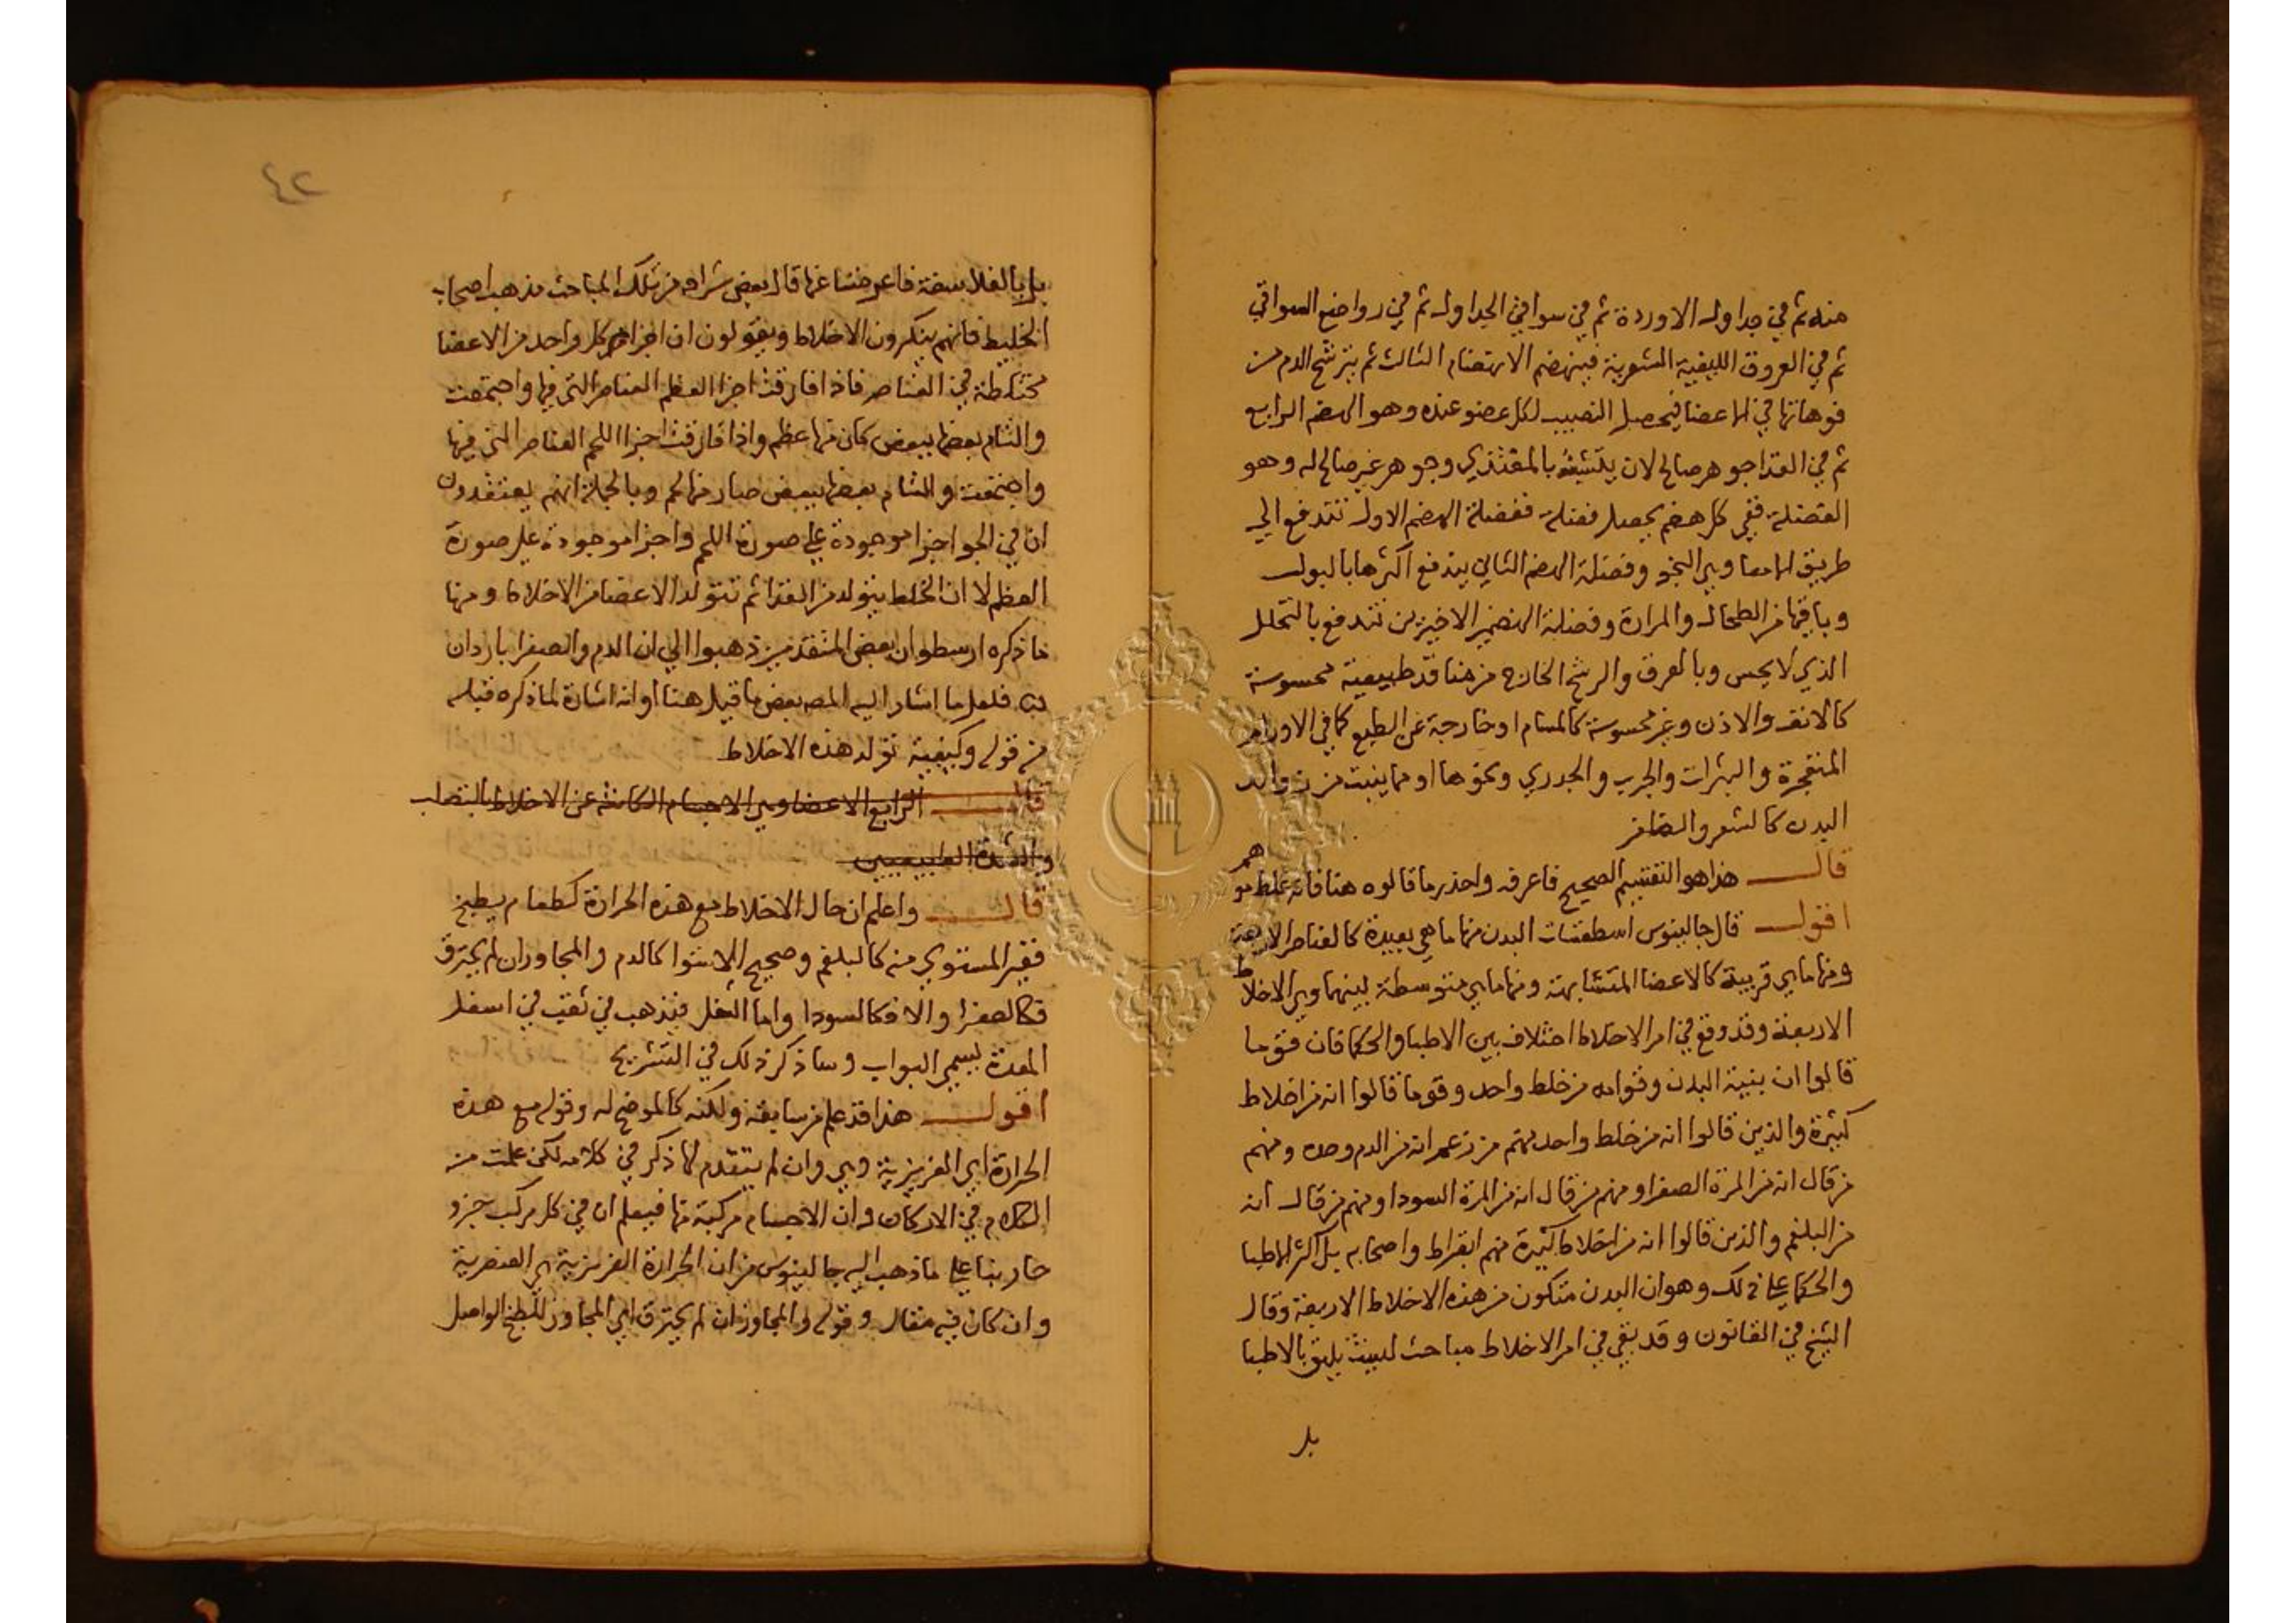 منه ثم في جداول الاوردة ثم في سواقي الجداول ثم في رواضع السواقي
ثم في العروق الليفية الشعرية فينهضم الانهضام الثالث ثم يترشح الدم من
فوهاتها في الاعضا فيحصل النصيب لكل عضو عنده وهو الهضم الرابع
ثم في الغذا جوهر صالح لان يتشبه بالمغتذي وجوهر غير صالح له وهو
الفضلة ففي كل هضم يحصل فضلة ففضلة الهضم الاول تندفع الي
طريق الامعا وهي النجو وفضلة الهضم الثاني يندفع اكثرها بالبول
وباقيها من الطحال والمرارة وفضلة الهضمين الاخيرين تندفع بالتحلل
الذي لا يحس وبالعرق والرشح الخارج من منافذ طبيعية محسوسة
كالانف والاذن وغير محسوسة كالمسام او خارجة عن الطبع كما في الاورام
المنفجرة والبثرات والجرب والجدري ونحوها او مما ينبت من زوائد
البدن كالشعر والظافر
قال هذا هو التقسيم الصحيح فاعرفه واحذر ما قالوه هنا فانه غلط هم
اقول قال جالينوس اسطقسات البدن منها ما هي بعيدة كالعناصر الاربعة
ومنها ما هي قريبة كالاعضا المتشابهة ومنها ما هي متوسطة بينهما وهي الاخلاط
الاربعة وقد وقع في امر الاخلاط اختلاف بين الاطبا والحكما فان قوما
قالوا ان بنية البدن وقوامه من خلط واحد وقوما قالوا انه من اخلاط
كثيرة والذين قالوا انه من خلط واحد منهم من زعم انه من الدم وحده ومنهم
من قال انه من المرة الصفرا ومنهم من قال انه من المرة السودا ومنهم من قال انه
من البلغم والذين قالوا انه من اخلاط كثيرة منهم ابقراط واصحابه بل اكثر الاطبا
والحكما علي ذلك وهو ان البدن متكون من هذه الاخلاط الاربعة وقال
الشيخ في القانون وقد بقي في امر الاخلاط مباحث ليست يليق بالاطبا
بل
٤٢
بل بالفلاسفة فاعرضنا عنها قال بعض شراحه من تلك المباحث مذهب اصحاب
الخليط فانهم ينكرون الاخلاط ويقولون ان اجزا كل واحد من الاعضا
مختلطة في العناصر فاذا فارقت اجزا العظم العناصر التي فيها واجتمعت
والتئام بعضها ببعض كان منها عظم واذا فارقت اجزا اللحم العناصر التي فيها
واجتمعت والتئام بعضها ببعض صار منها لحم وبالجملة انهم يعتقدون
ان في الجو اجزا موجودة علي صورة اللحم واجزا موجودة علي صورة
العظم لا ان الخلط يتولد من الغذا ثم تتولد الاعضا من الاخلاط ومنها
ما ذكره ارسطو ان بعض المتقدمين ذهبوا الي ان الدم والصفرا باردان
فلعل ما اشار اليه المصه بعض ما قيل هنا او انه اشارة لما ذكره قبله
من قوله وكيفية تولد هذه الاخلاط
قال الرابع الاعضا وهي الاجسام الكائنة عن الاخلاط بالتصلب
والشدة الطبيعيين
قال واعلم ان حال الاخلاط مع هذه الحرارة كطعام يطبخ
فغير المستوي منه كالبلغم وصحيح الاستوا كالدم والمجاوز ان لم يحترق
فكالصفرا والا فكالسودا واما الثفل فيذهب في ثقب في اسفل
المعدة يسمي البواب وساذكر ذلك في التشريح
اقول هذا قد علم من سابقه ولكنه كالموضح له وقوله مع هذه
الحرارة اي الغريزية وهي وان لم يتقدم لها ذكر في كلامه لكن علمت من
الكلام في الاركان وان الاجسام مركبة منها فيعلم ان في كل مركب جزو
حار بنا علي ما ذهب اليه جالينوس من ان الحرارة الغريزية هي العنصرية
وان كان فيه مقال وقوله والمجاوز ان لم يحترق اي المجاوز للطبخ الواصل